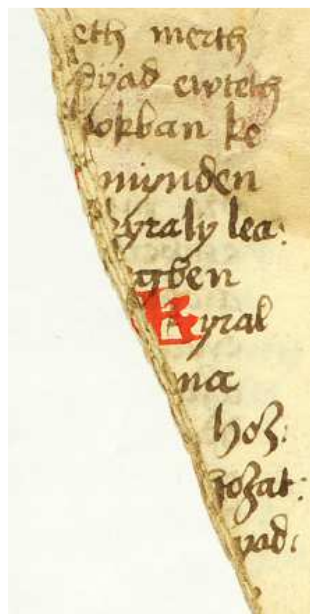 eth merth
ewteth
okban ke
mynden
kyraly lea:
agben
kyral
na
hoz:
hozat:
yad: